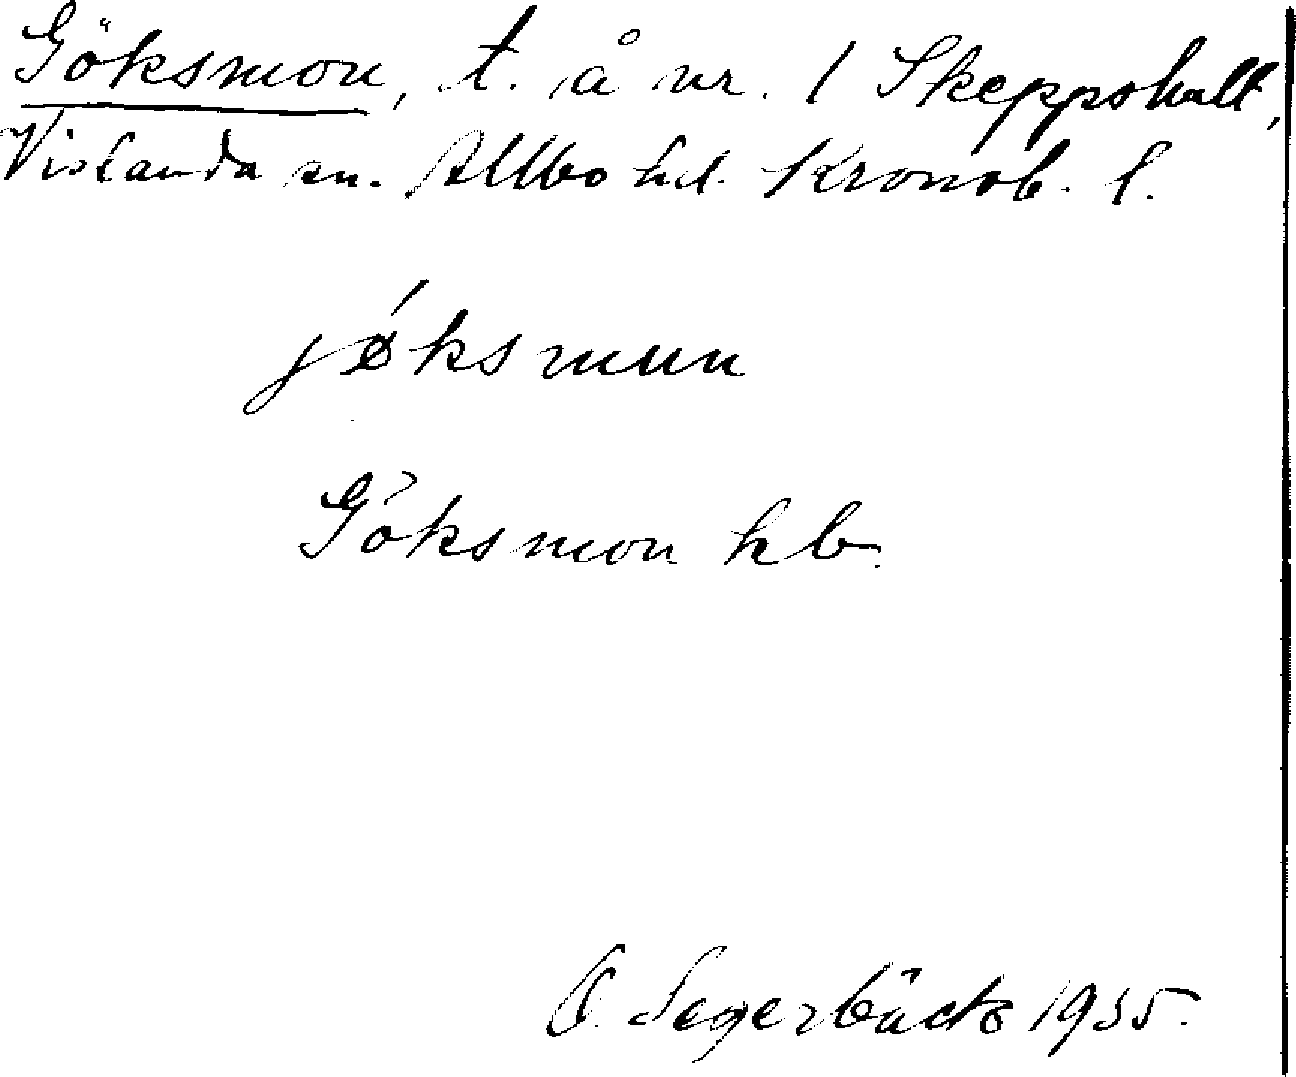 Göksmon, t. å nr. 1 Skeppshult,
Vislanda sn. Allbo hd. Kronob. l.
jøksmun
Göksmon hb.
B. Segerbäck 1955.